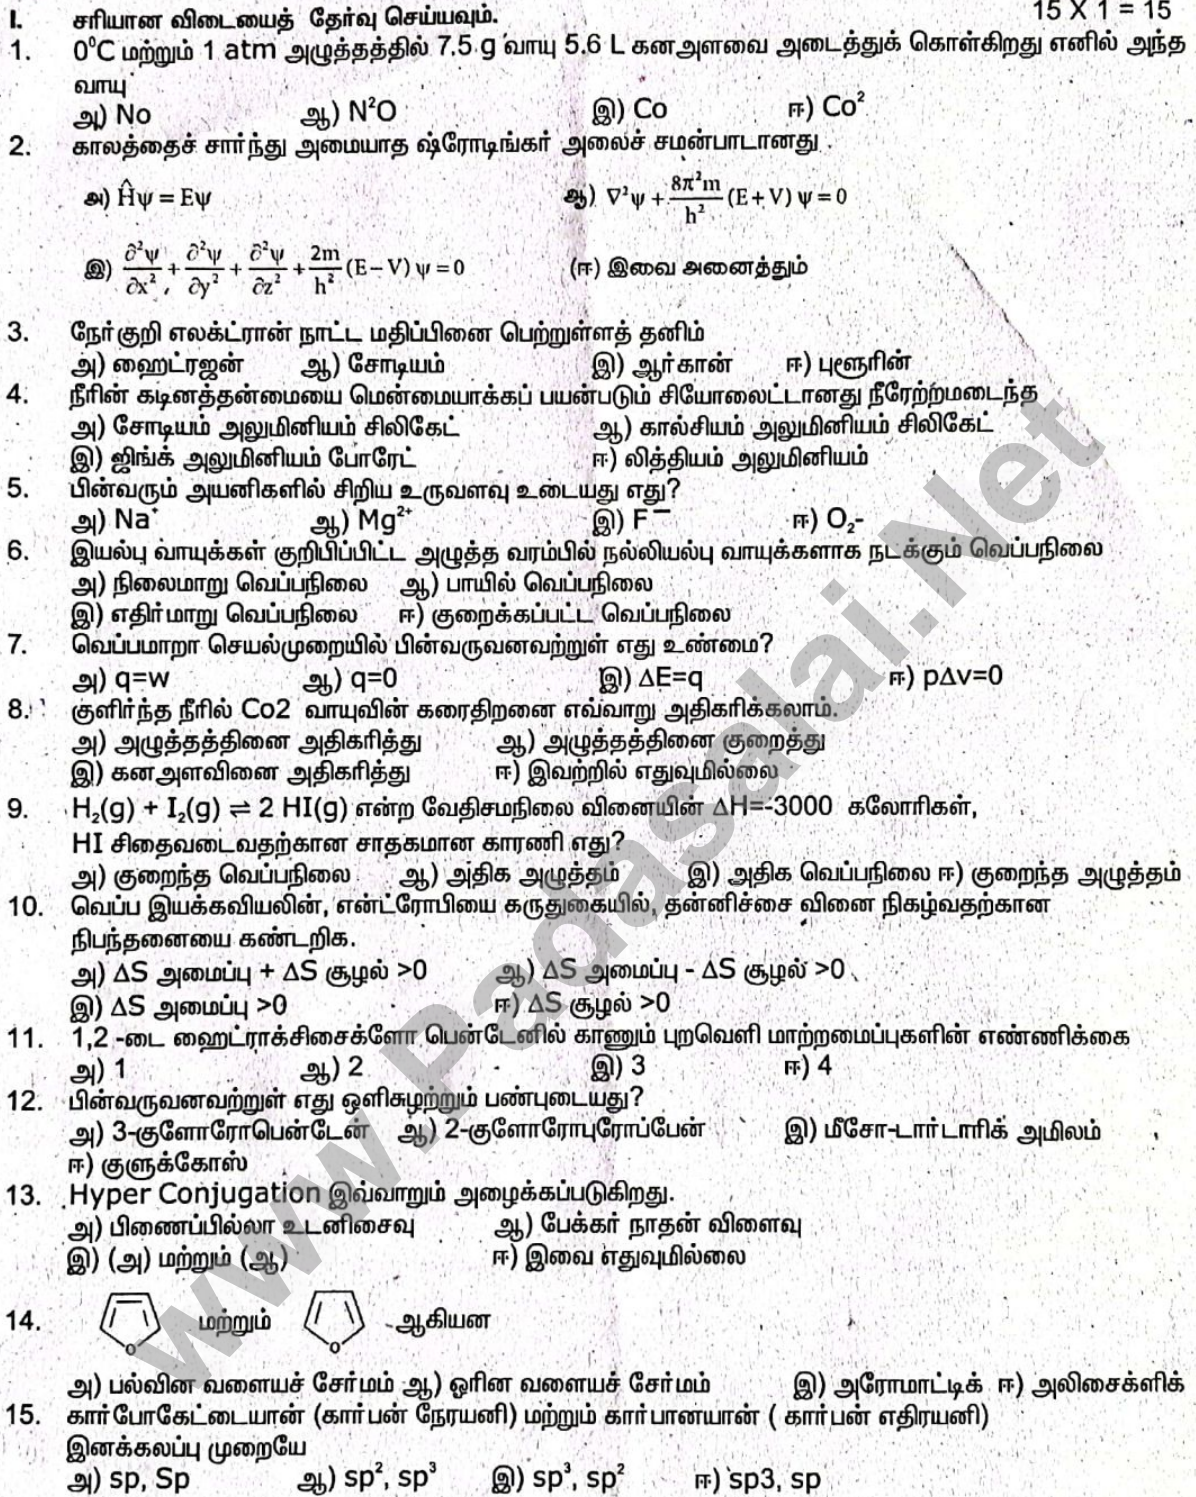 I. சரியான விடையைத் தேர்வு செய்யவும். 15 X 1 = 15
1. 0⁰C மற்றும் 1 atm அழுத்தத்தில் 7.5 g வாயு 5.6 L கனஅளவை அடைத்துக் கொள்கிறது எனில் அந்த
வாயு
அ) No ஆ) N²O இ) Co ஈ) Co²
2. காலத்தைச் சார்ந்து அமையாத ஷ்ரோடிங்கர் அலைச் சமன்பாடானது
அ) Ĥψ = Eψ ஆ) ∇²ψ + 8π²m/h² (E+V) ψ = 0
இ) ∂²ψ/∂x² + ∂²ψ/∂y² + ∂²ψ/∂z² + 2m/h² (E−V) ψ = 0 (ஈ) இவை அனைத்தும்
3. நேர்குறி எலக்ட்ரான் நாட்ட மதிப்பினை பெற்றுள்ளத் தனிம்
அ) ஹைட்ரஜன் ஆ) சோடியம் இ) ஆர்கான் ஈ) புளூரின்
4. நீரின் கடினத்தன்மையை மென்மையாக்கப் பயன்படும் சியோலைட்டானது நீரேற்ற்மடைந்த
அ) சோடியம் அலுமினியம் சிலிகேட் ஆ) கால்சியம் அலுமினியம் சிலிகேட்
இ) ஜிங்க் அலுமினியம் போரேட் ஈ) லித்தியம் அலுமினியம்
5. பின்வரும் அயனிகளில் சிறிய உருவளவு உடையது எது?
அ) Na⁺ ஆ) Mg²⁺ இ) F⁻ ஈ) O₂-
6. இயல்பு வாயுக்கள் குறிபிப்பிட்ட அழுத்த வரம்பில் நல்லியல்பு வாயுக்களாக நடக்கும் வெப்பநிலை
அ) நிலைமாறு வெப்பநிலை ஆ) பாயில் வெப்பநிலை
இ) எதிர்மாறு வெப்பநிலை ஈ) குறைக்கப்பட்ட வெப்பநிலை
7. வெப்பமாறா செயல்முறையில் பின்வருவனவற்றுள் எது உண்மை?
அ) q=w ஆ) q=0 இ) ∆E=q ஈ) p∆v=0
8. குளிர்ந்த நீரில் Co2 வாயுவின் கரைதிறனை எவ்வாறு அதிகரிக்கலாம்.
அ) அழுத்தத்தினை அதிகரித்து ஆ) அழுத்தத்தினை குறைத்து
இ) கனஅளவினை அதிகரித்து ஈ) இவற்றில் எதுவுமில்லை
9. H₂(g) + I₂(g) ⇌ 2 HI(g) என்ற வேதிசமநிலை வினையின் ∆H=-3000 கலோரிகள்,
HI சிதைவடைவதற்கான சாதகமான காரணி எது?
அ) குறைந்த வெப்பநிலை ஆ) அதிக அழுத்தம் இ) அதிக வெப்பநிலை ஈ) குறைந்த அழுத்தம்
10. வெப்ப இயக்கவியலின், என்ட்ரோபியை கருதுகையில், தன்னிச்சை வினை நிகழ்வதற்கான
நிபந்தனையை கண்டறிக.
அ) ∆S அமைப்பு + ∆S சூழல் >0 ஆ) ∆S அமைப்பு - ∆S சூழல் >0
இ) ∆S அமைப்பு >0 ஈ) ∆S சூழல் >0
11. 1,2 -டை ஹைட்ராக்சிசைக்ளோ பென்டேனில் காணும் புறவெளி மாற்றமைப்புகளின் எண்ணிக்கை
அ) 1 ஆ) 2 இ) 3 ஈ) 4
12. பின்வருவனவற்றுள் எது ஒளிசுழற்றும் பண்புடையது?
அ) 3-குளோரோபென்டேன் ஆ) 2-குளோரோபுரோப்பேன் இ) மீசோ-டார்டாரிக் அமிலம்
ஈ) குளுக்கோஸ்
13. Hyper Conjugation இவ்வாறும் அழைக்கப்படுகிறது.
அ) பிணைப்பில்லா உடனிசைவு ஆ) பேக்கர் நாதன் விளைவு
இ) (அ) மற்றும் (ஆ) ஈ) இவை எதுவுமில்லை
14. O மற்றும் O ஆகியன
அ) பல்வின வளையச் சேர்மம் ஆ) ஓரின வளையச் சேர்மம் இ) அரோமாட்டிக் ஈ) அலிசைக்ளிக்
15. கார்போகேட்டையான் (கார்பன் நேரயனி) மற்றும் கார்பானயான் ( கார்பன் எதிரயனி)
இனக்கலப்பு முறையே
அ) sp, Sp ஆ) sp², sp³ இ) sp³, sp² ஈ) sp3, sp
www.Padasalai.Net